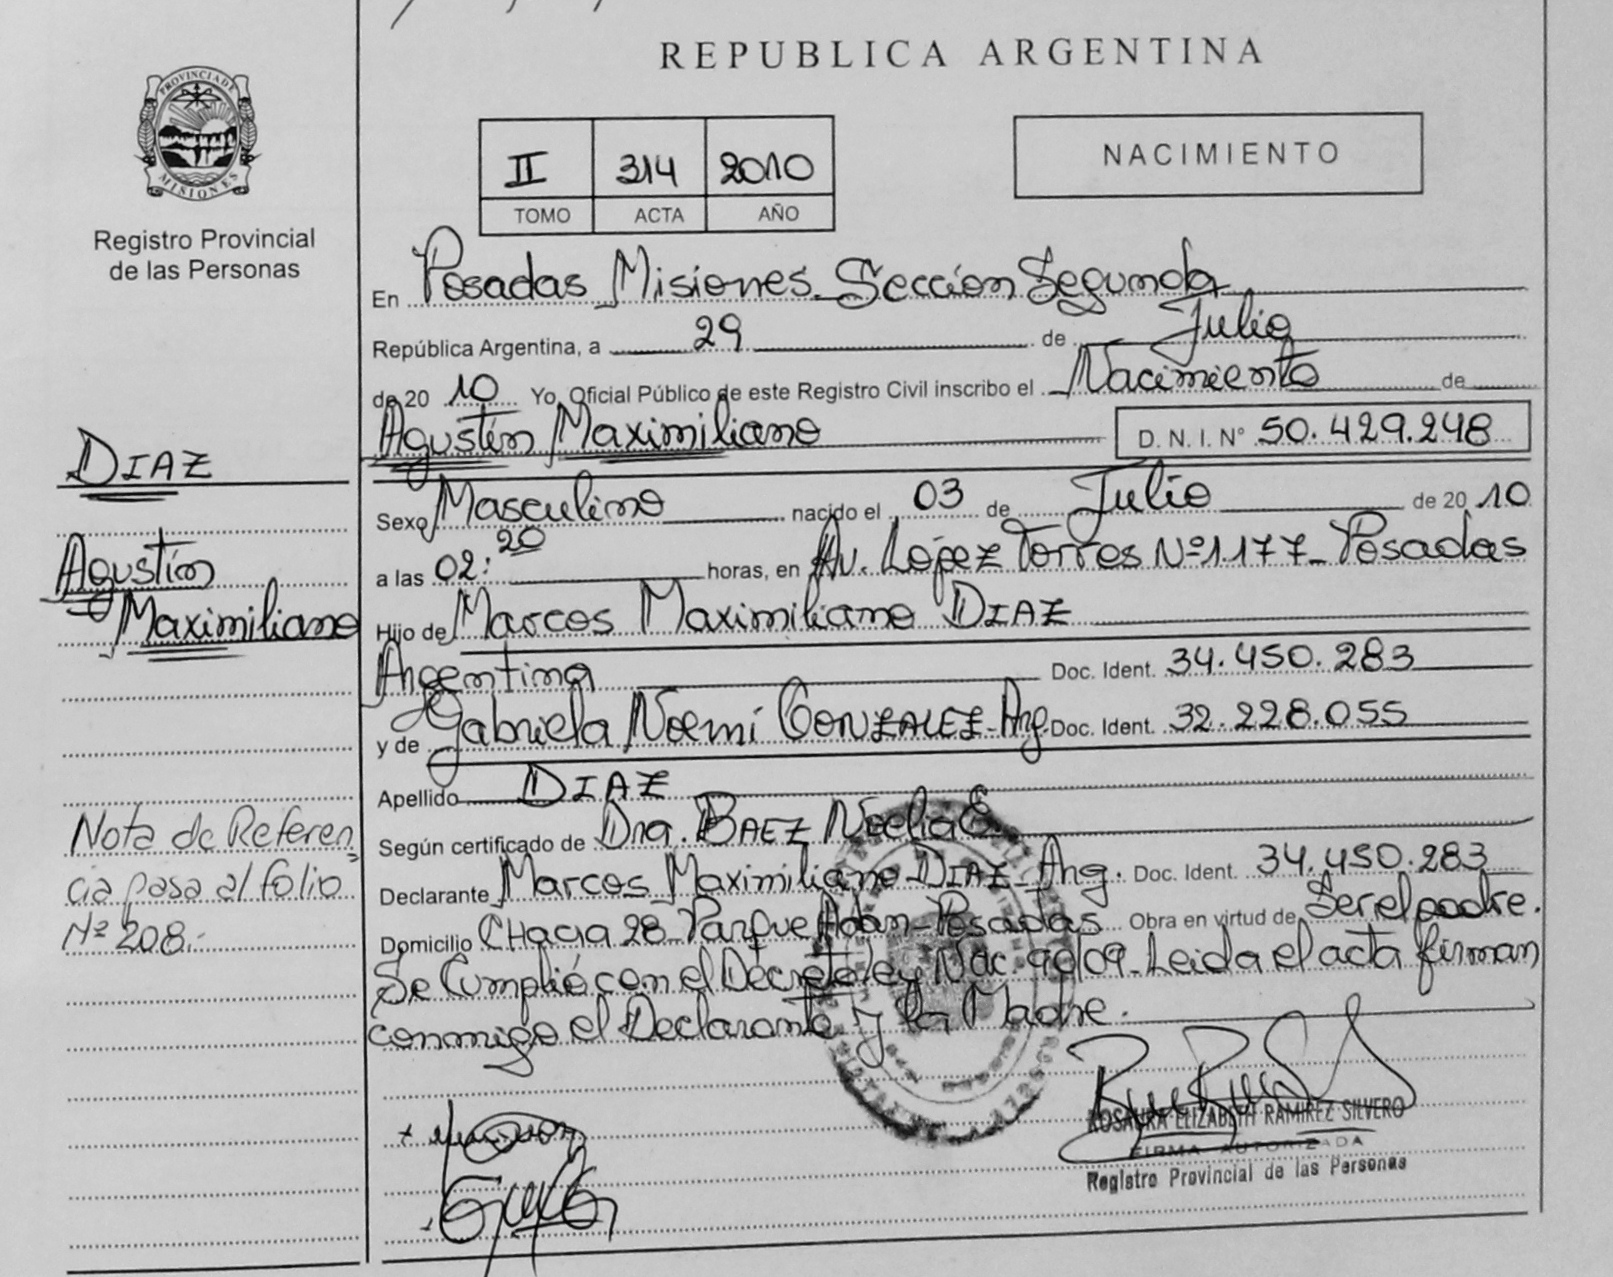 REPUBLICA ARGENTINA
PROVINCIA DE
MISIONES
Registro Provincial
de las Personas
II 314 2010
TOMO ACTA AÑO
NACIMIENTO
En Posadas Misiones Sección Segunda
República Argentina, a 29 de Julio
de 20 10 Yo, Oficial Público de este Registro Civil inscribo el Nacimiento de
Agustín Maximiliano D. N. I. Nº 50.429.248
Sexo Masculino nacido el 03 de Julio de 20 10
a las 02:20 horas, en Av. López Torres Nº 1177 - Posadas
Hijo de Marcos Maximiliano DIAZ
Argentino Doc. Ident. 34.450.283
y de Gabriela Noemí GONZALEZ - Arg. Doc. Ident. 32.228.055
Apellido DIAZ
Según certificado de Dra. BAEZ Noelia E.
Declarante Marcos Maximiliano DIAZ - Arg. Doc. Ident. 34.450.283
Domicilio CHacra 28 Parque Adan - Posadas Obra en virtud de Ser el padre.
Se Cumplió con el Decreto ley Nac. 90/09 - Leida el acta firman
conmigo el Declarante y la Madre.
DIAZ
Agustín
Maximiliano
Nota de Referen
cia pasa al folio
Nº 208.-
ROSAURA ELIZABETH RAMIREZ SILVERO
FIRMA AUTORIZADA
Registro Provincial de las Personas